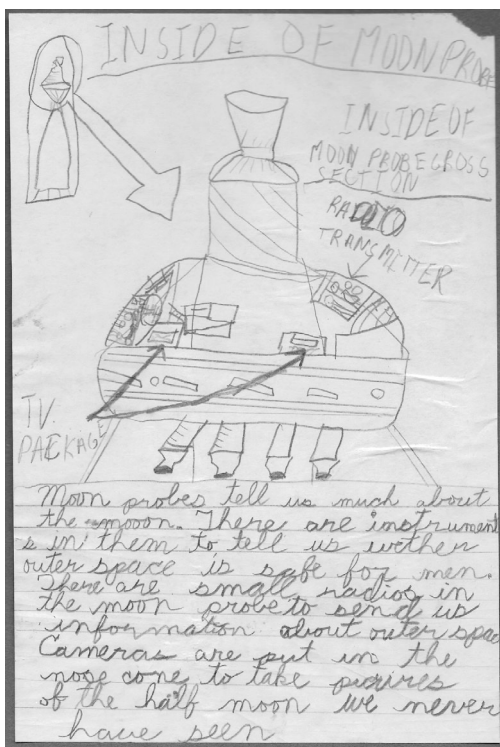 INSIDE OF MOONPROBE
INSIDE OF
MOON PROBE CROSS
SECTION
RADIO
TRANSMITTER
TV.
PACKAGE
Moon probes tell us much about
the mooon. There are instrument
s in them to tell us wether
outer space is safe for men.
There are small radios in
the moon probe to send us
information about outer space
Cameras are put in the
nose cone to take picires
of the half moon we never
have seen